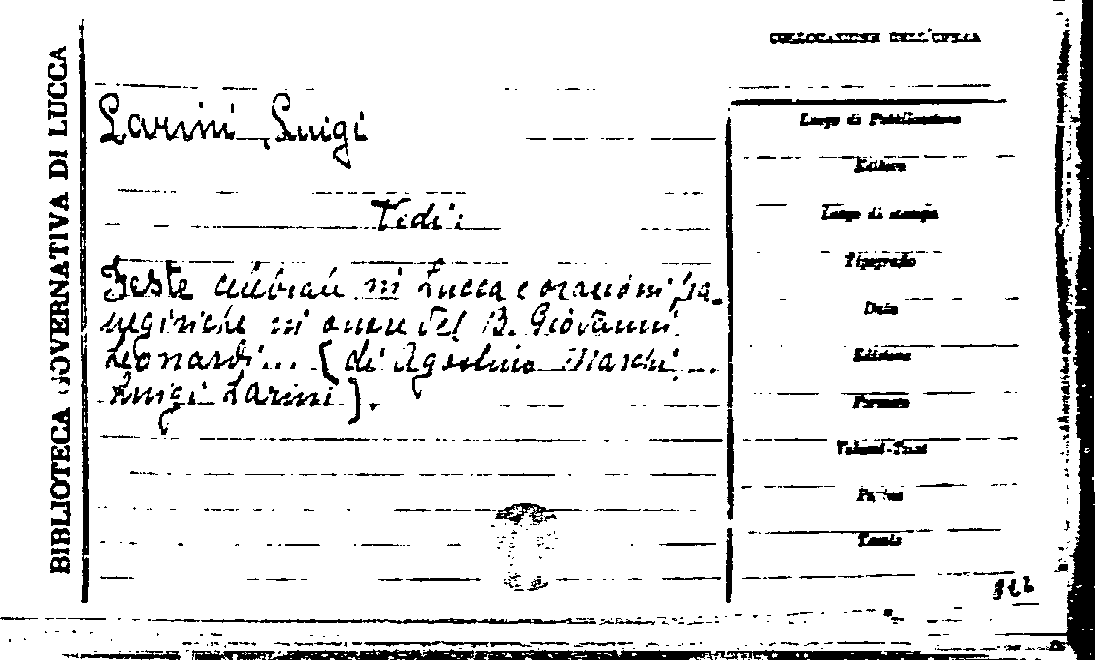 BIBLIOTECA GOVERNATIVA DI LUCCA
COLLOCAZIONE DELL'OPERA
Larini, Luigi
Vedi:
Feste celebrate in Lucca e orazioni pa-
negiriche in onore del B. Giovanni
Leonardi... [di Agostino Marchi...
Luigi Larini].
Luogo di Pubblicazione
Editore
Luogo di stampa
Tipografo
Data
Edizione
Formato
Volumi-Tomi
Pagine
Tavole